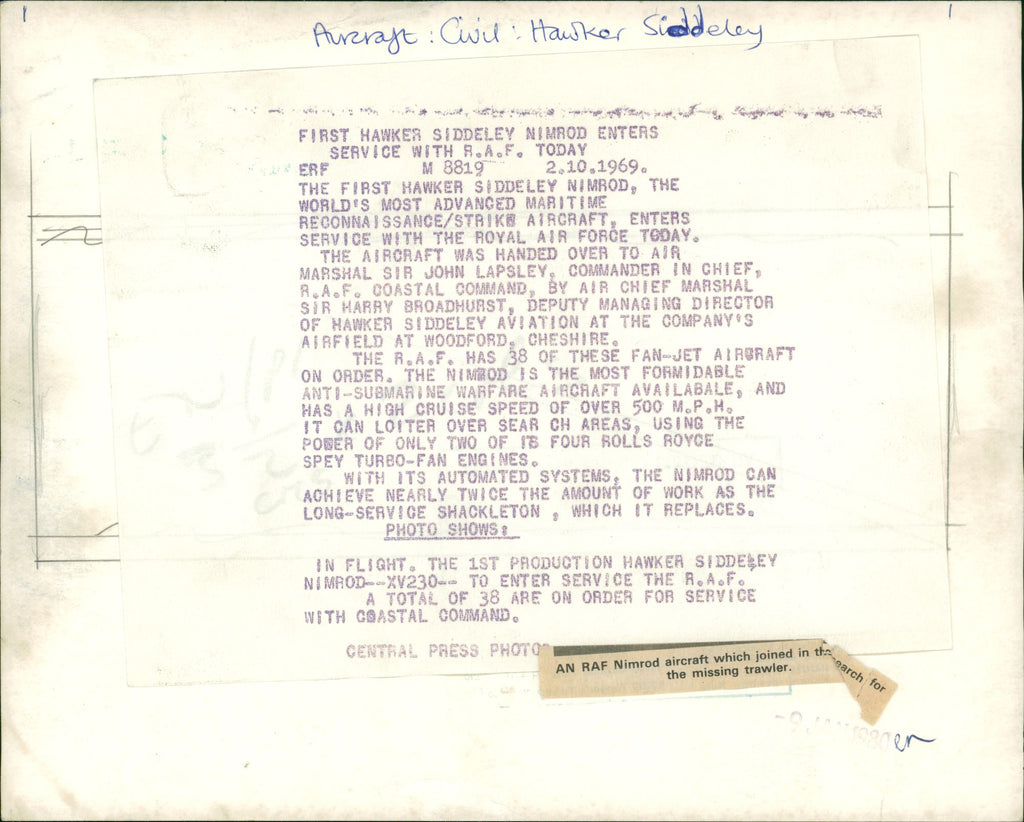 Aircraft : Civil : Hawker Siddeley
FIRST HAWKER SIDDELEY NIMROD ENTERS
SERVICE WITH R.A.F. TODAY
ERF M 8819 2.10.1969.
THE FIRST HAWKER SIDDELEY NIMROD, THE
WORLD'S MOST ADVANCED MARITIME
RECONNAISSANCE/STRIKE AIRCRAFT, ENTERS
SERVICE WITH THE ROYAL AIR FORCE TODAY.
THE AIRCRAFT WAS HANDED OVER TO AIR
MARSHAL SIR JOHN LAPSLEY, COMMANDER IN CHIEF,
R.A.F. COASTAL COMMAND, BY AIR CHIEF MARSHAL
SIR HARRY BROADHURST, DEPUTY MANAGING DIRECTOR
OF HAWKER SIDDELEY AVIATION AT THE COMPANY'S
AIRFIELD AT WOODFORD, CHESHIRE.
THE R.A.F. HAS 38 OF THESE FAN-JET AIRCRAFT
ON ORDER. THE NIMROD IS THE MOST FORMIDABLE
ANTI-SUBMARINE WARFARE AIRCRAFT AVAILABALE, AND
HAS A HIGH CRUISE SPEED OF OVER 500 M.P.H.
IT CAN LOITER OVER SEAR CH AREAS, USING THE
POWER OF ONLY TWO OF ITS FOUR ROLLS ROYCE
SPEY TURBO-FAN ENGINES.
WITH ITS AUTOMATED SYSTEMS, THE NIMROD CAN
ACHIEVE NEARLY TWICE THE AMOUNT OF WORK AS THE
LONG-SERVICE SHACKLETON , WHICH IT REPLACES.
PHOTO SHOWS:
IN FLIGHT. THE 1ST PRODUCTION HAWKER SIDDELEY
NIMROD--XV230-- TO ENTER SERVICE THE R.A.F.
A TOTAL OF 38 ARE ON ORDER FOR SERVICE
WITH COASTAL COMMAND.
CENTRAL PRESS PHOTOS
AN RAF Nimrod aircraft which joined in the search for
the missing trawler.